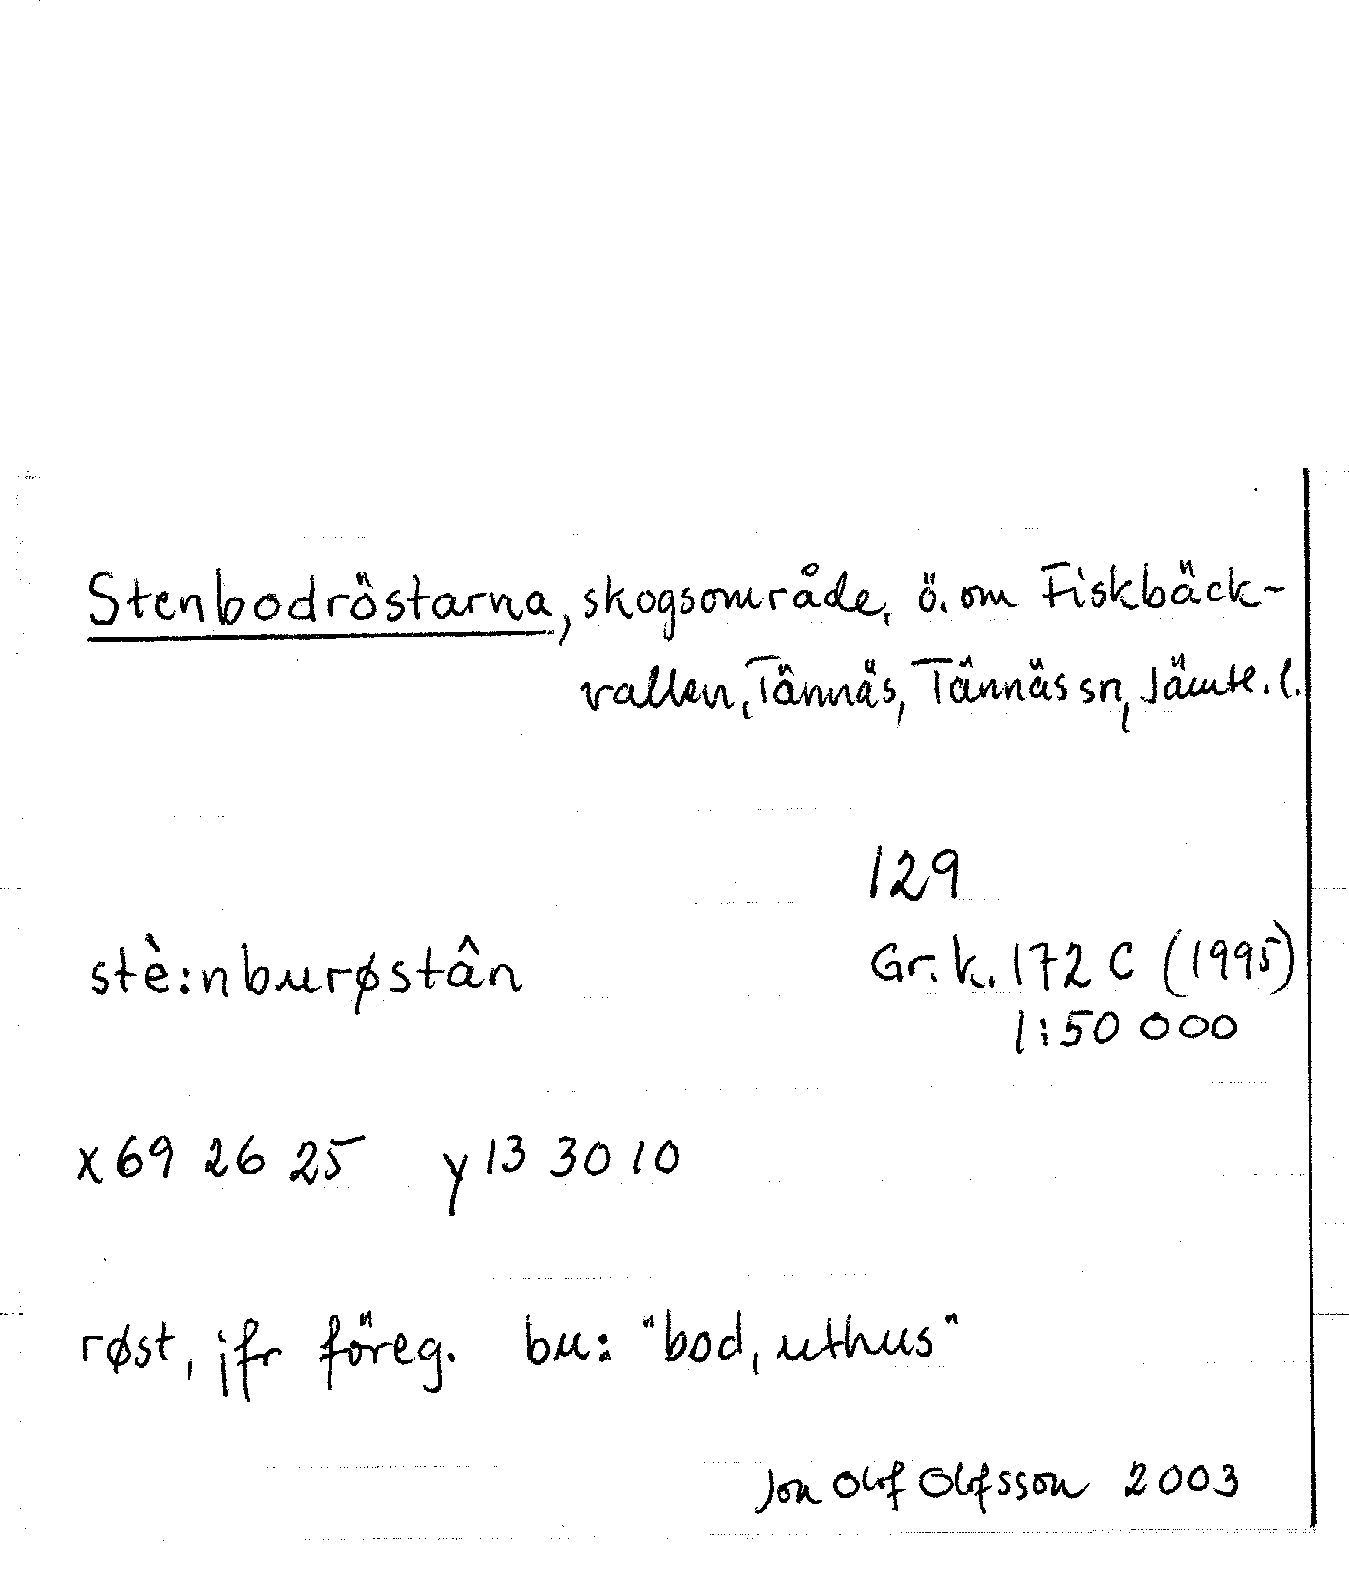 Stenbodröstarna, skogsområde, ö. om Fiskbäck-
vallen, Tännäs, Tännäs sn, Jämtl. l.
129
stè:nburøstân
Gr. k. 172 C (1995)
1:50 000
x 69 26 25 y 13 30 10
røst, jfr föreg. bu: "bod, uthus"
Jon Olof Olofsson 2003